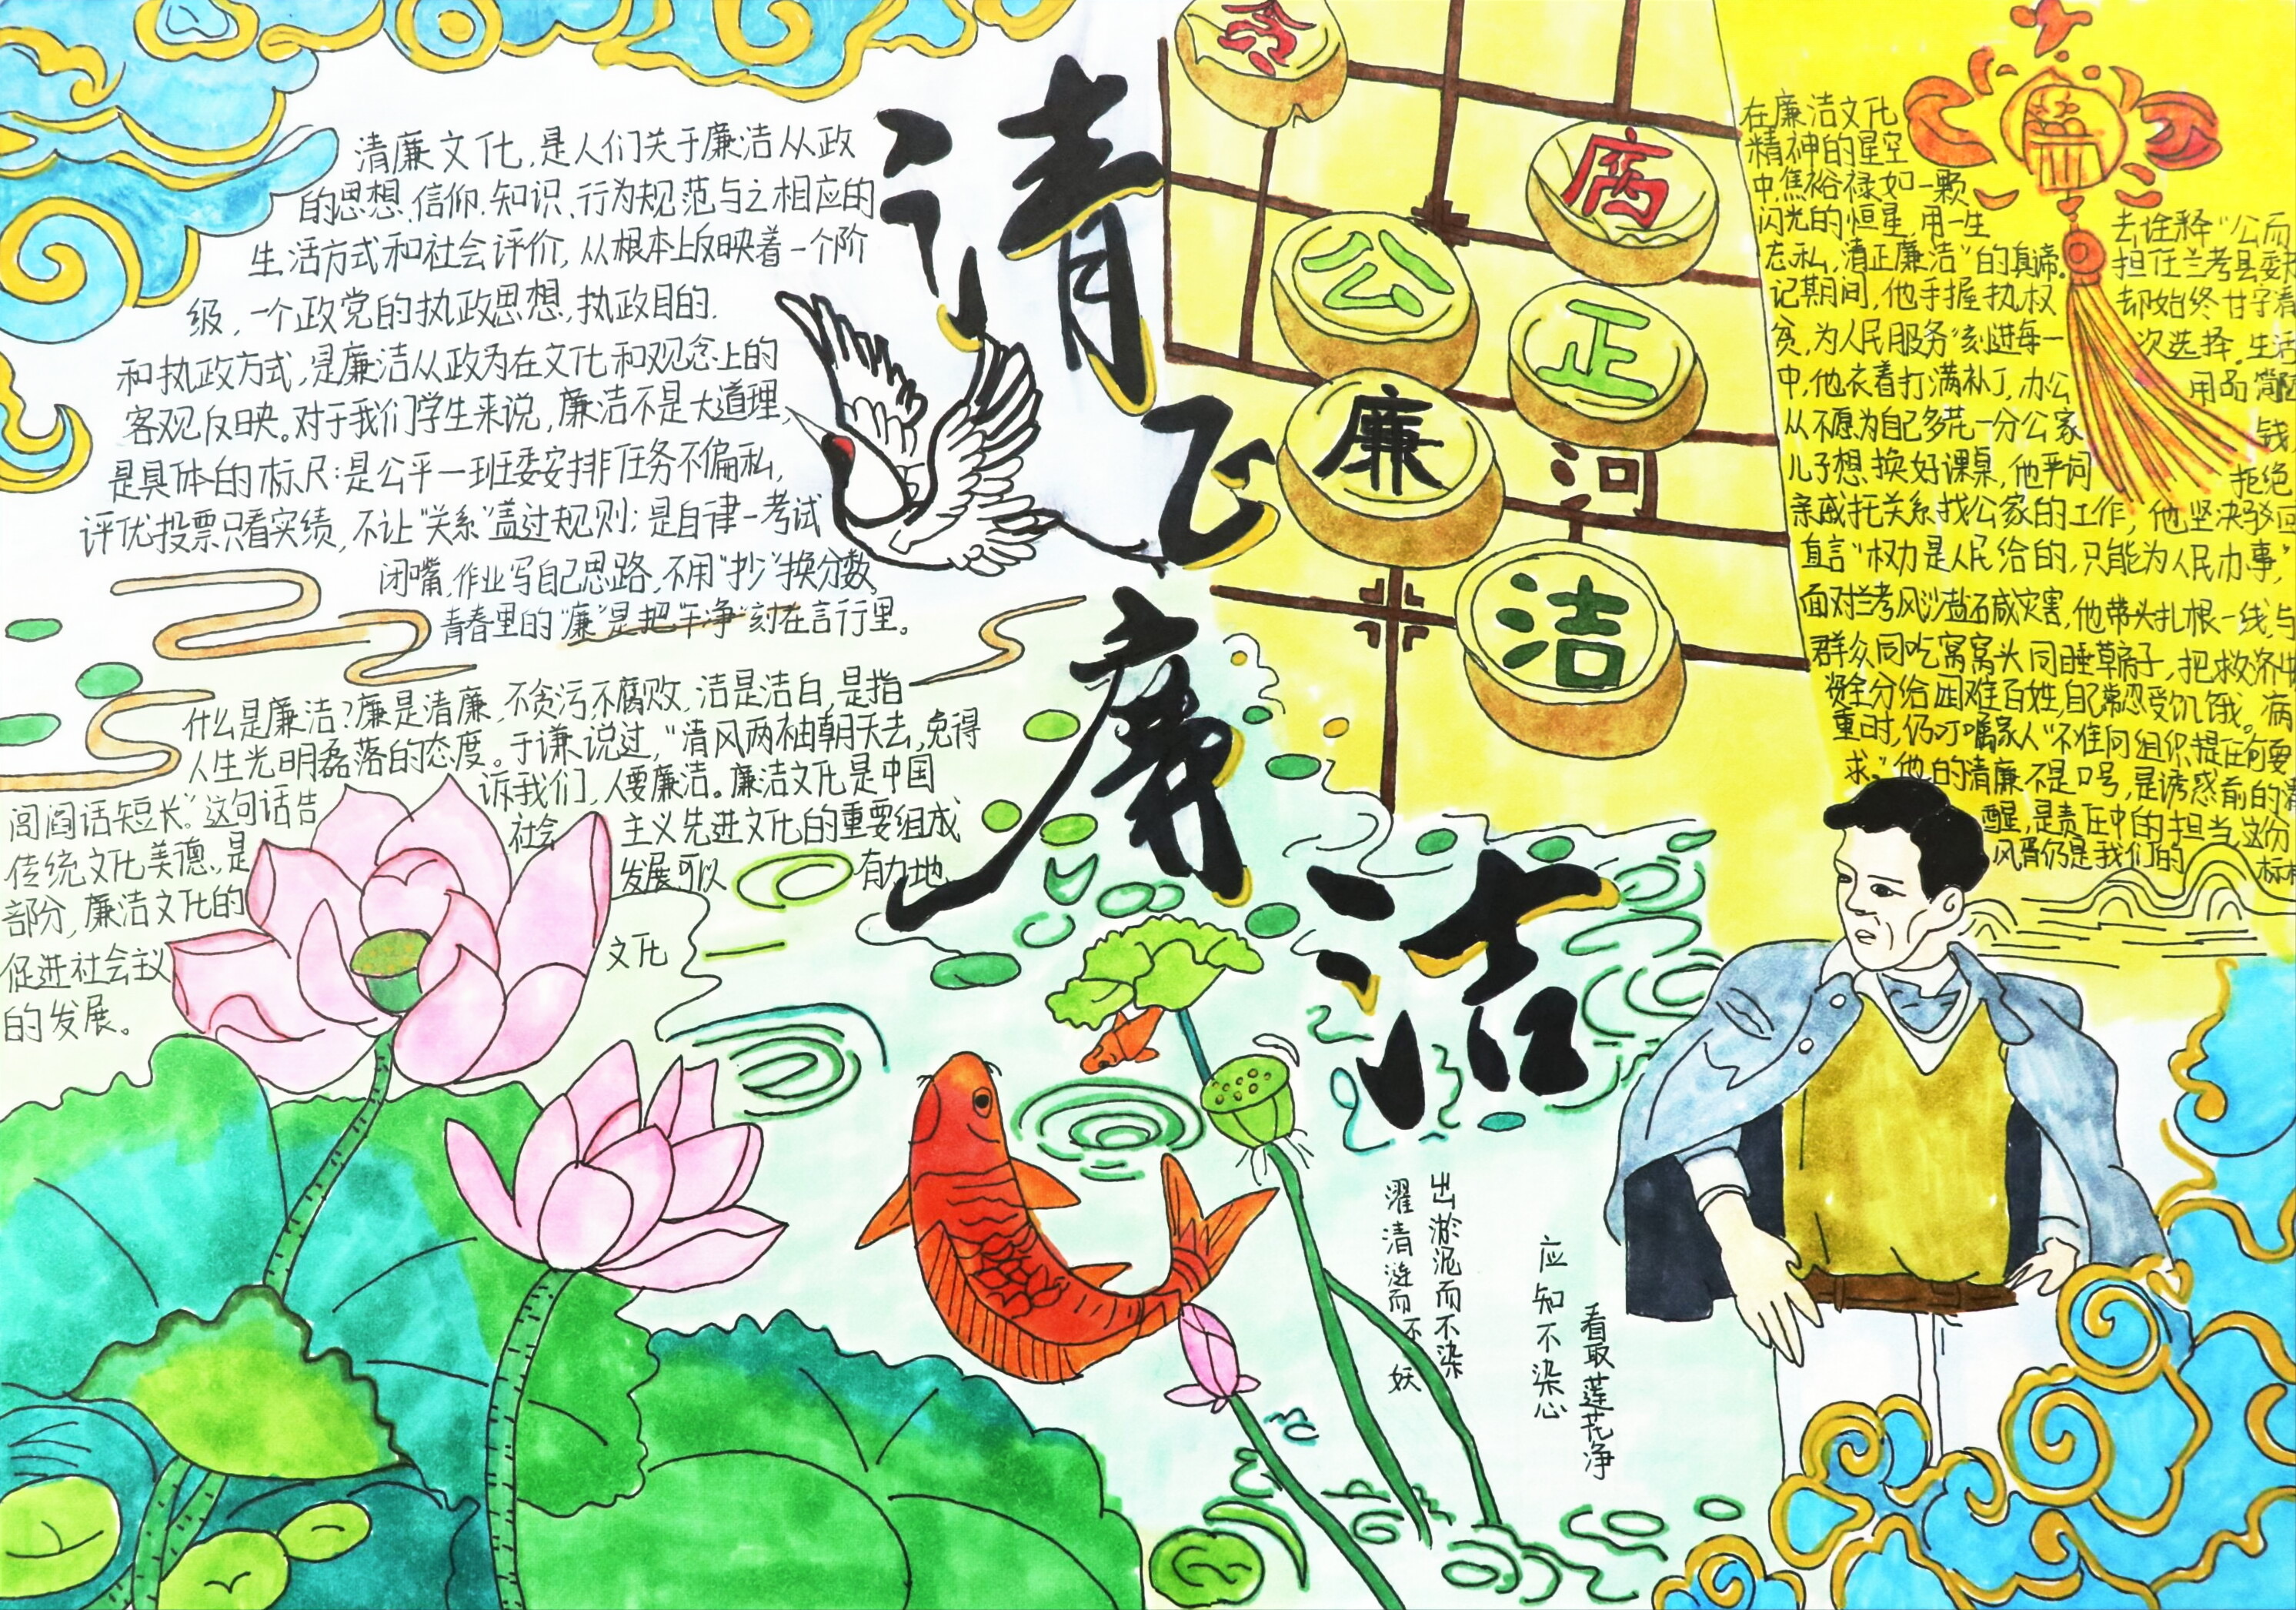 清正廉洁
贪
腐
公
正
廉
河
洁
清廉文化,是人们关于廉洁从政
的思想、信仰、知识、行为规范与之相应的
生活方式和社会评价,从根本上反映着一个阶
级,一个政党的执政思想,执政目的.
和执政方式,是廉洁从政为在文化和观念上的
客观反映。对于我们学生来说,廉洁不是大道理,
是具体的标尺:是公平一班委安排任务不偏私,
评优投票只看实绩,不让"关系"盖过规则;是自律-考试
闭嘴,作业写自己思路,不用"抄"换分数,
青春里的"廉"是把"干净"刻在言行里。
什么是廉洁?廉是清廉,不贪污,不腐败,洁是洁白,是指
人生光明磊落的态度。于谦说过,"清风两袖朝天去,免得
闾阎话短长"。这句话告诉我们,人要廉洁。廉洁文化是中国
传统文化美德,是社会主义先进文化的重要组成
部分,廉洁文化的发展可以有力地
促进社会主义文化
的发展。
在廉洁文化
精神的星空
中,焦裕禄如一颗
闪光的恒星,用一生
去诠释"公而
忘私,清正廉洁"的真谛.
担任兰考县委
记期间,他手握执权
却始终甘守清
贫,为人民服务"刻进每一
次选择.生活
中,他衣着打满补丁,办公
用品简陋
从不愿为自己多花一分公家
钱
儿子想换好课桌,他严词
拒绝
亲戚托关系找公家的工作,他坚决驳回
直言"权力是人民给的,只能为人民办事,"
面对兰考风沙盐碱灾害,他带头扎根一线,与
群众同吃窝窝头同睡草席子,把救济
粮全分给困难百姓,自己常忍受饥饿。病
重时,仍叮嘱家人"不准向组织提任何要
求."他的清廉不是口号,是诱惑前的清
醒,是责任中的担当,这份
风骨仍是我们的
标
出淤泥而不染
濯清涟而不妖
看取莲花净
应知不染心